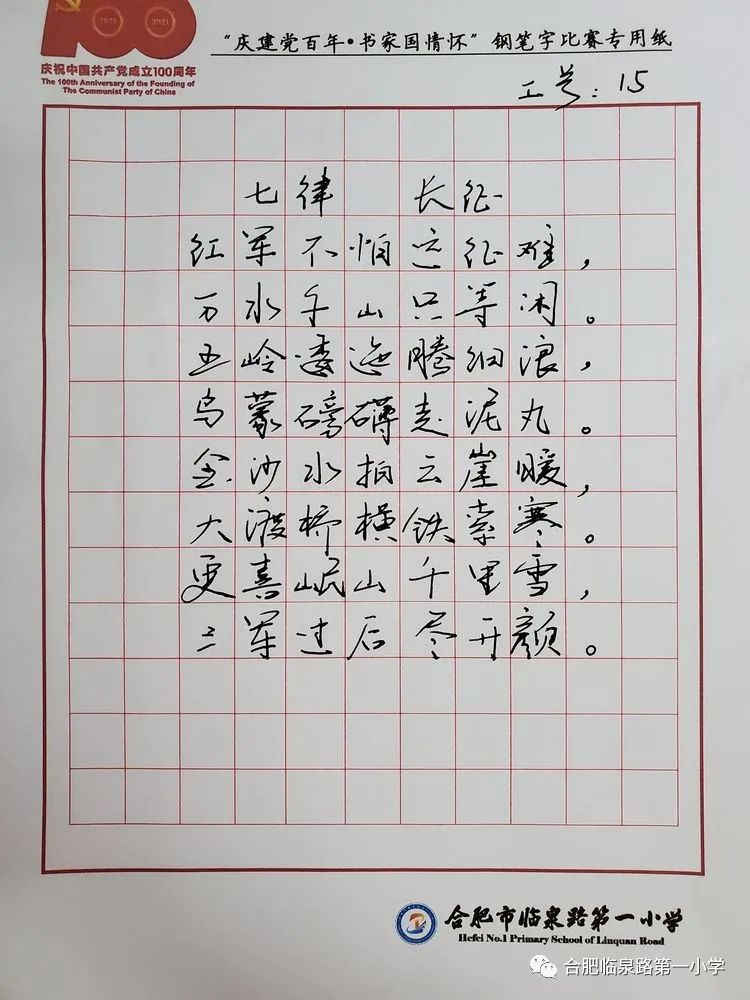 1921 2021
庆祝中国共产党成立100周年
The 100th Anniversary of the Founding of
The Communist Party of China
“庆建党百年·书家国情怀”钢笔字比赛专用纸
工号：15
七律 长征
红军不怕远征难，
万水千山只等闲。
五岭逶迤腾细浪，
乌蒙磅礴走泥丸。
金沙水拍云崖暖，
大渡桥横铁索寒。
更喜岷山千里雪，
三军过后尽开颜。
合肥市临泉路第一小学
Hefei No.1 Primary School of Linquan Road
合肥临泉路第一小学